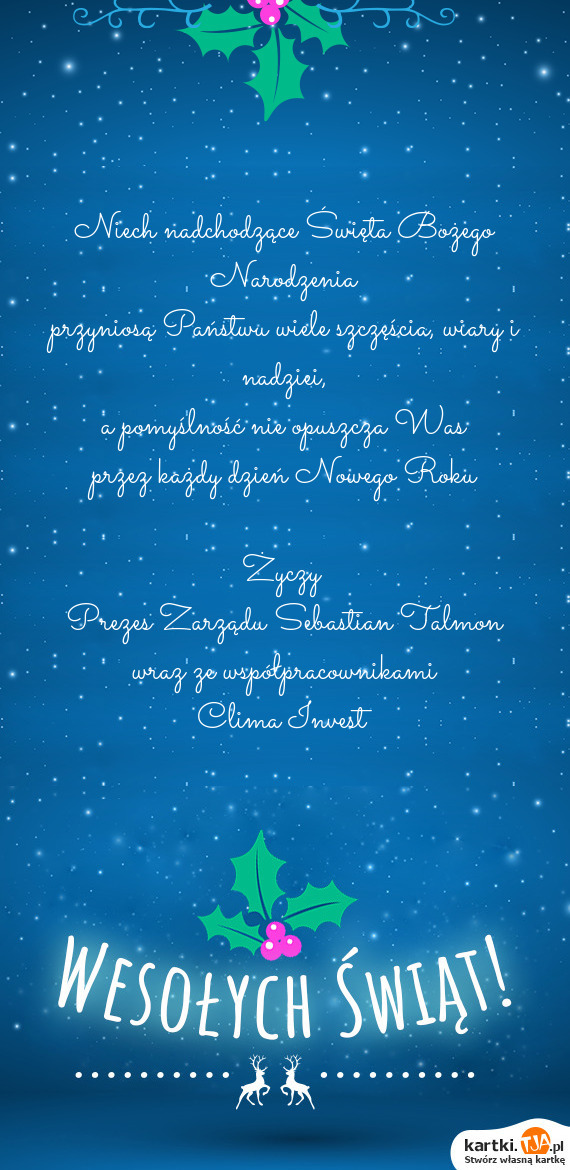 Niech nadchodzące Święta Bożego
Narodzenia
przyniosą Państwu wiele szczęścia, wiary i
nadziei,
a pomyślność nie opuszcza Was
przez każdy dzień Nowego Roku
Życzy
Prezes Zarządu Sebastian Talmon
wraz ze współpracownikami
Clima Invest
Wesołych Świąt!
kartki.TJA.pl
Stwórz własną kartkę